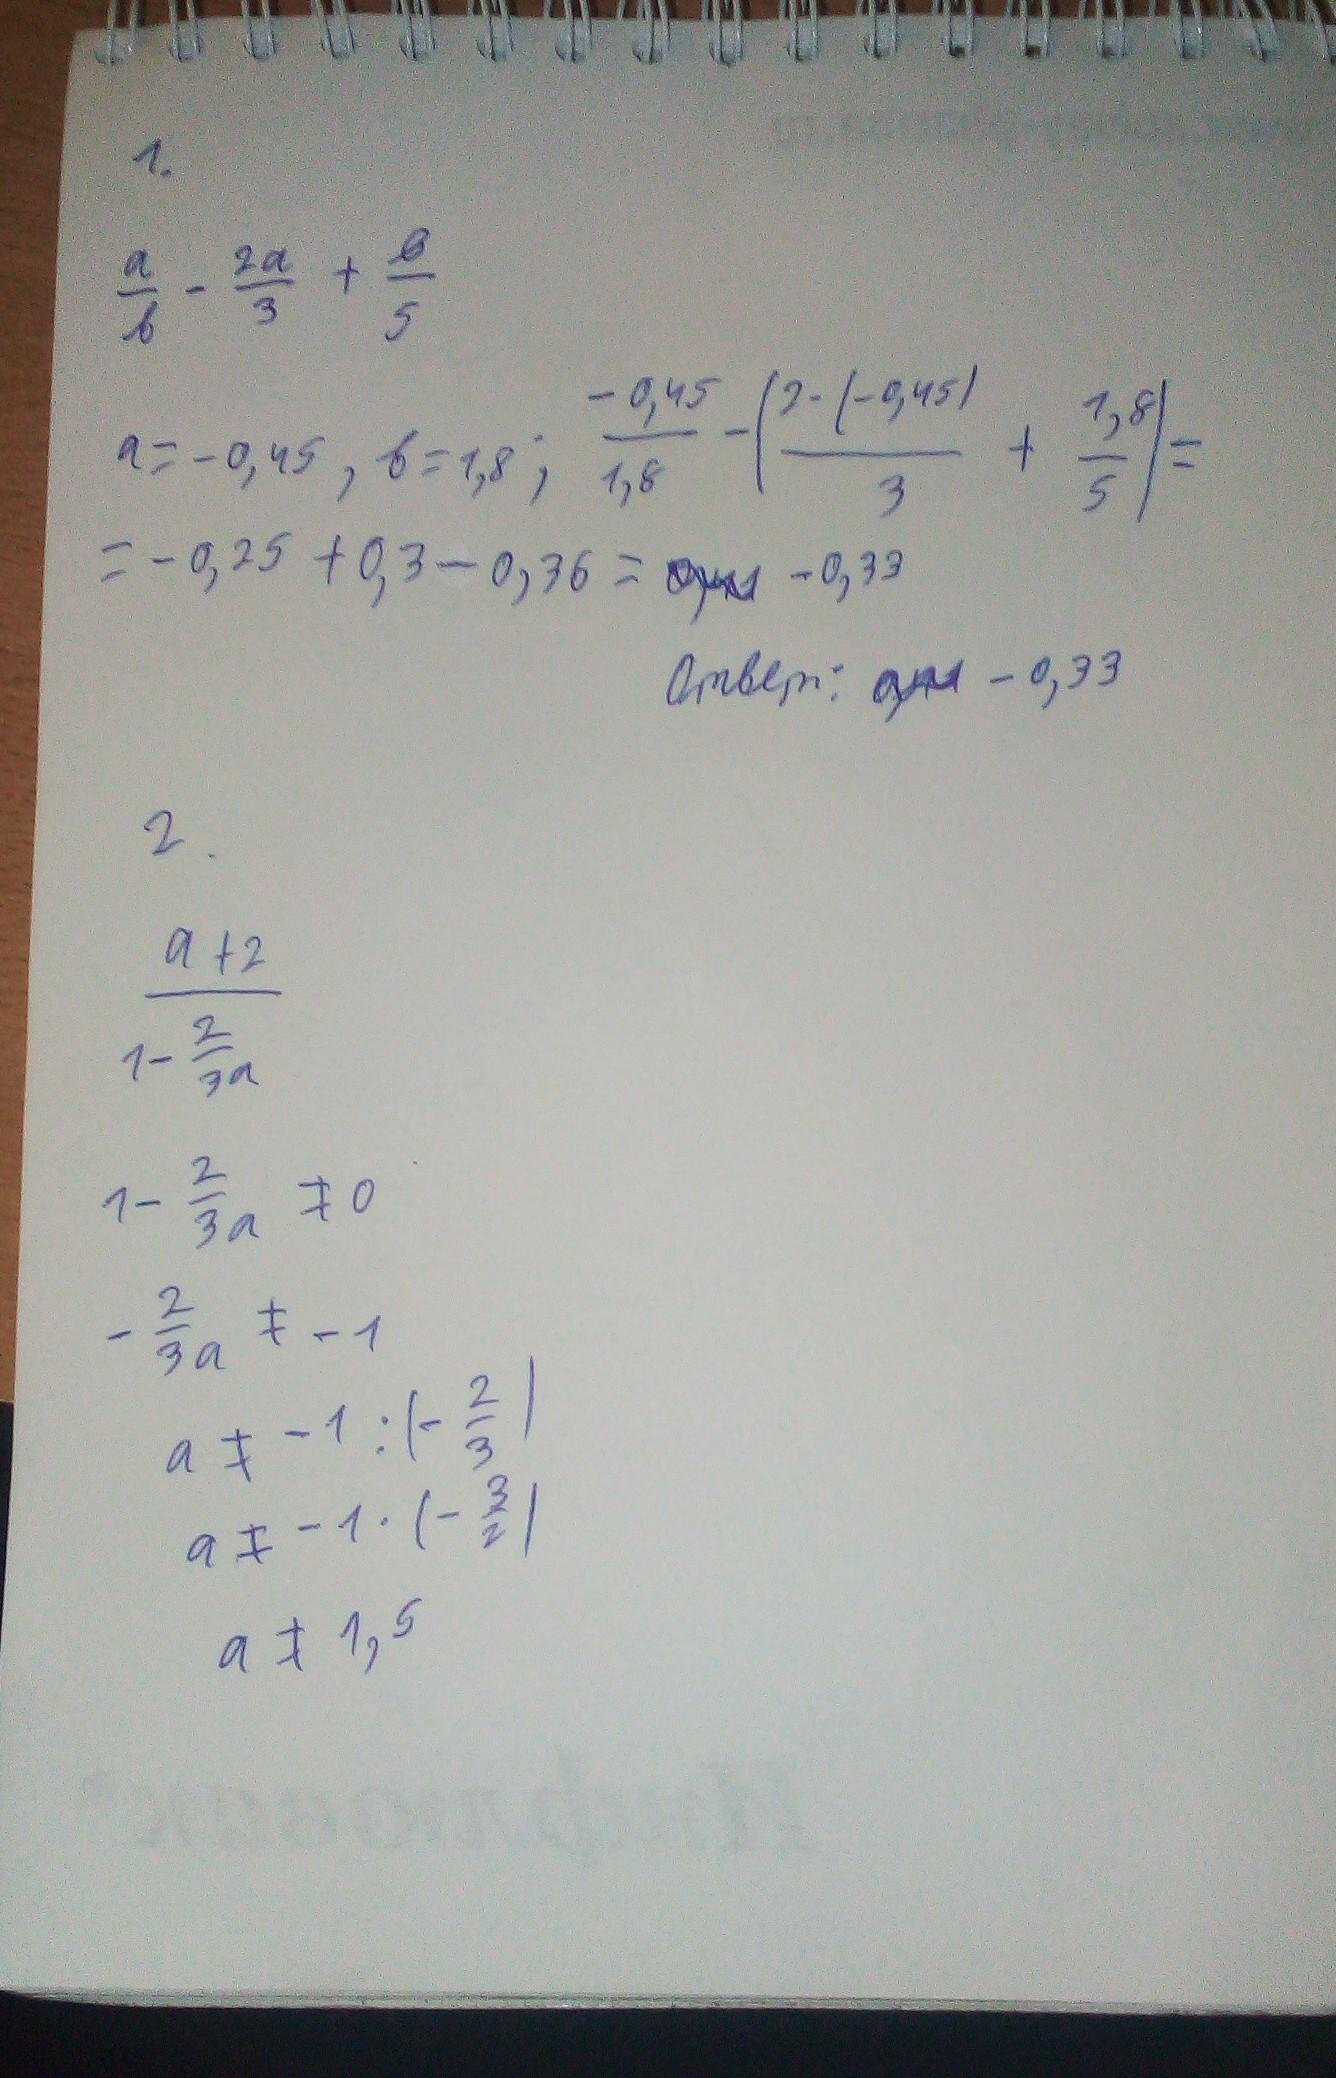 1.
a/b - 2a/3 + b/5
a = -0,45, b = 1,8; -0,45/1,8 - (2·(-0,45)/3 + 1,8/5) =
= -0,25 + 0,3 - 0,36 = -0,33
Ответ: -0,33
2.
a+2
1- 2/3a
1- 2/3a ≠ 0
- 2/3a ≠ -1
a ≠ -1 : (- 2/3)
a ≠ -1 · (- 3/2)
a ≠ 1,5